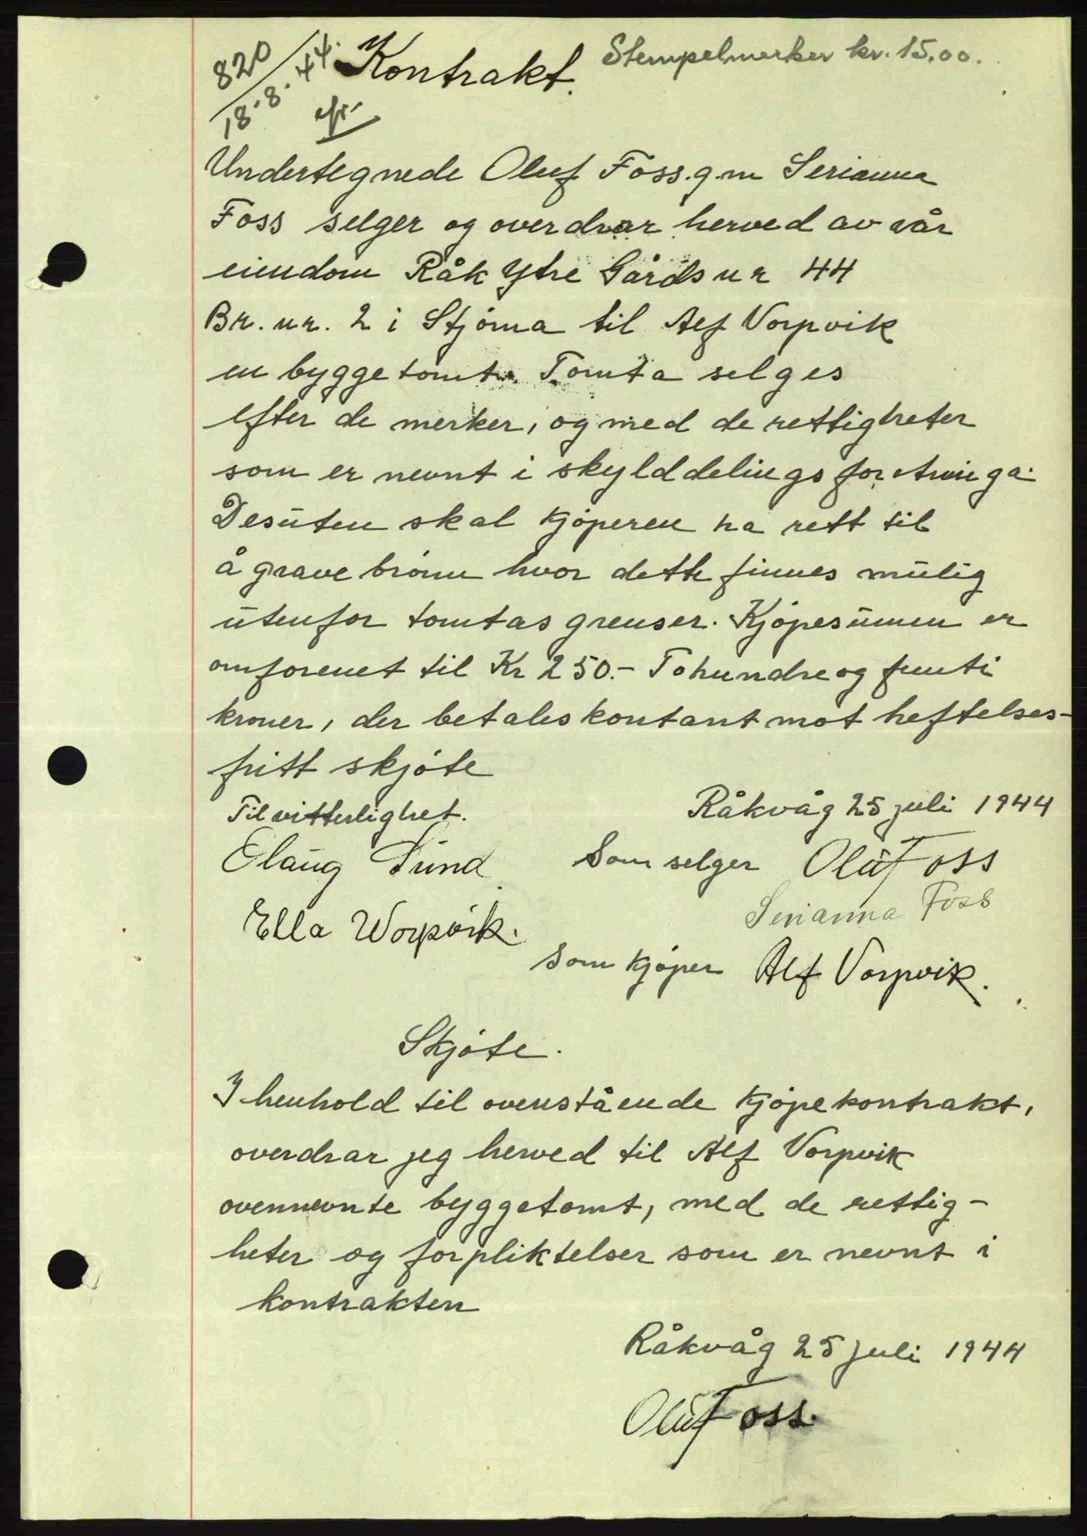 820
18.8.44.
Kontrakt.
Stempelmerker kr. 15.00.
Undertegnede Oluf Foss g.m Serianna
Foss selger og overdrar herved av vår
eiendom Råk Ytre Gårdsnr 44
Br. nr. 2 i Stjørna til Alf Vorpvik
en byggetomt. Tomta selges
efter de merker, og med de rettigheter
som er nevnt i skylddelingsforetninga.
Desuten skal kjøperen ha rett til
å grave brønn hvor dette finnes mulig
utenfor tomtas grenser. Kjøpesumen er
omforenet til Kr 250.- Tohundreogfemti
kroner, der betales kontant mot heftelses-
fritt skjøte
Til vitterlighet.
Råkvåg 25 juli 1944
Elaug Sund
Som selger Oluf Foss
Serianna Foss
Ella Worpvik.
Som kjøper Alf Vorpvik.
Skjøte.
I henhold til ovenstående kjøpekontrakt,
overdrar jeg herved til Alf Vorpvik
ovennevnte byggetomt, med de rettig-
heter og forpliktelser som er nevnt i
kontrakten
Råkvåg 25 juli 1944
Oluf Foss.